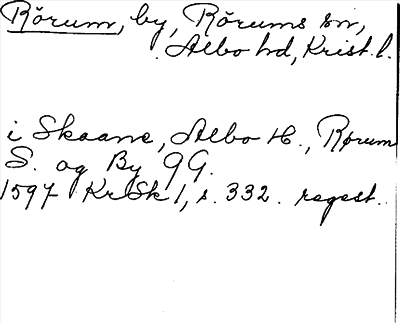 Rörum, by, Rörums sn,
Albo hd, Krist. l.
i Skaane, Albo H., Rørum
S. og By 9 G.
1597 KrSk 1, s. 332. regest.